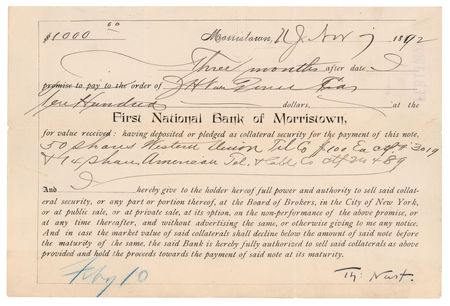 $1000 00 Morristown, N J Nov 7 1892
Three months after date I
promise to pay to the order of
Ten Hundred dollars, at the
First National Bank of Morristown,
for value received: having deposited or pledged as collateral security for the payment of this note,
50 shares Western Union Tel Co $100 Ea
& 14 shares American Tel. & Cable Co
And I hereby give to the holder hereof full power and authority to sell said collat-
eral security, or any part or portion thereof, at the Board of Brokers, in the City of New York,
or at public sale, or at private sale, at its option, on the non-performance of the above promise, or
at any time thereafter, and without advertising the same, or otherwise giving to me any notice.
And in case the market value of said collaterals shall decline below the amount of said note before
the maturity of the same, the said Bank is hereby fully authorized to sell said collaterals as above
provided and hold the proceeds towards the payment of said note at its maturity.
Feby 10 Th: Nast.